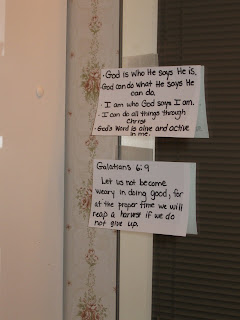 · God is Who He says He is.
God can do what He says He
can do.
· I am who God says I am.
· I can do all things through
Christ
· God's Word is alive and active
in me.
Galatians 6:9
Let us not become
weary in doing good, for
at the proper time we will
reap a harvest if we do
not give up.